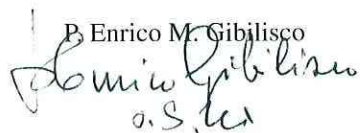 P. Enrico M. Gibilisco
Enrico Gibilisco
o.S.M